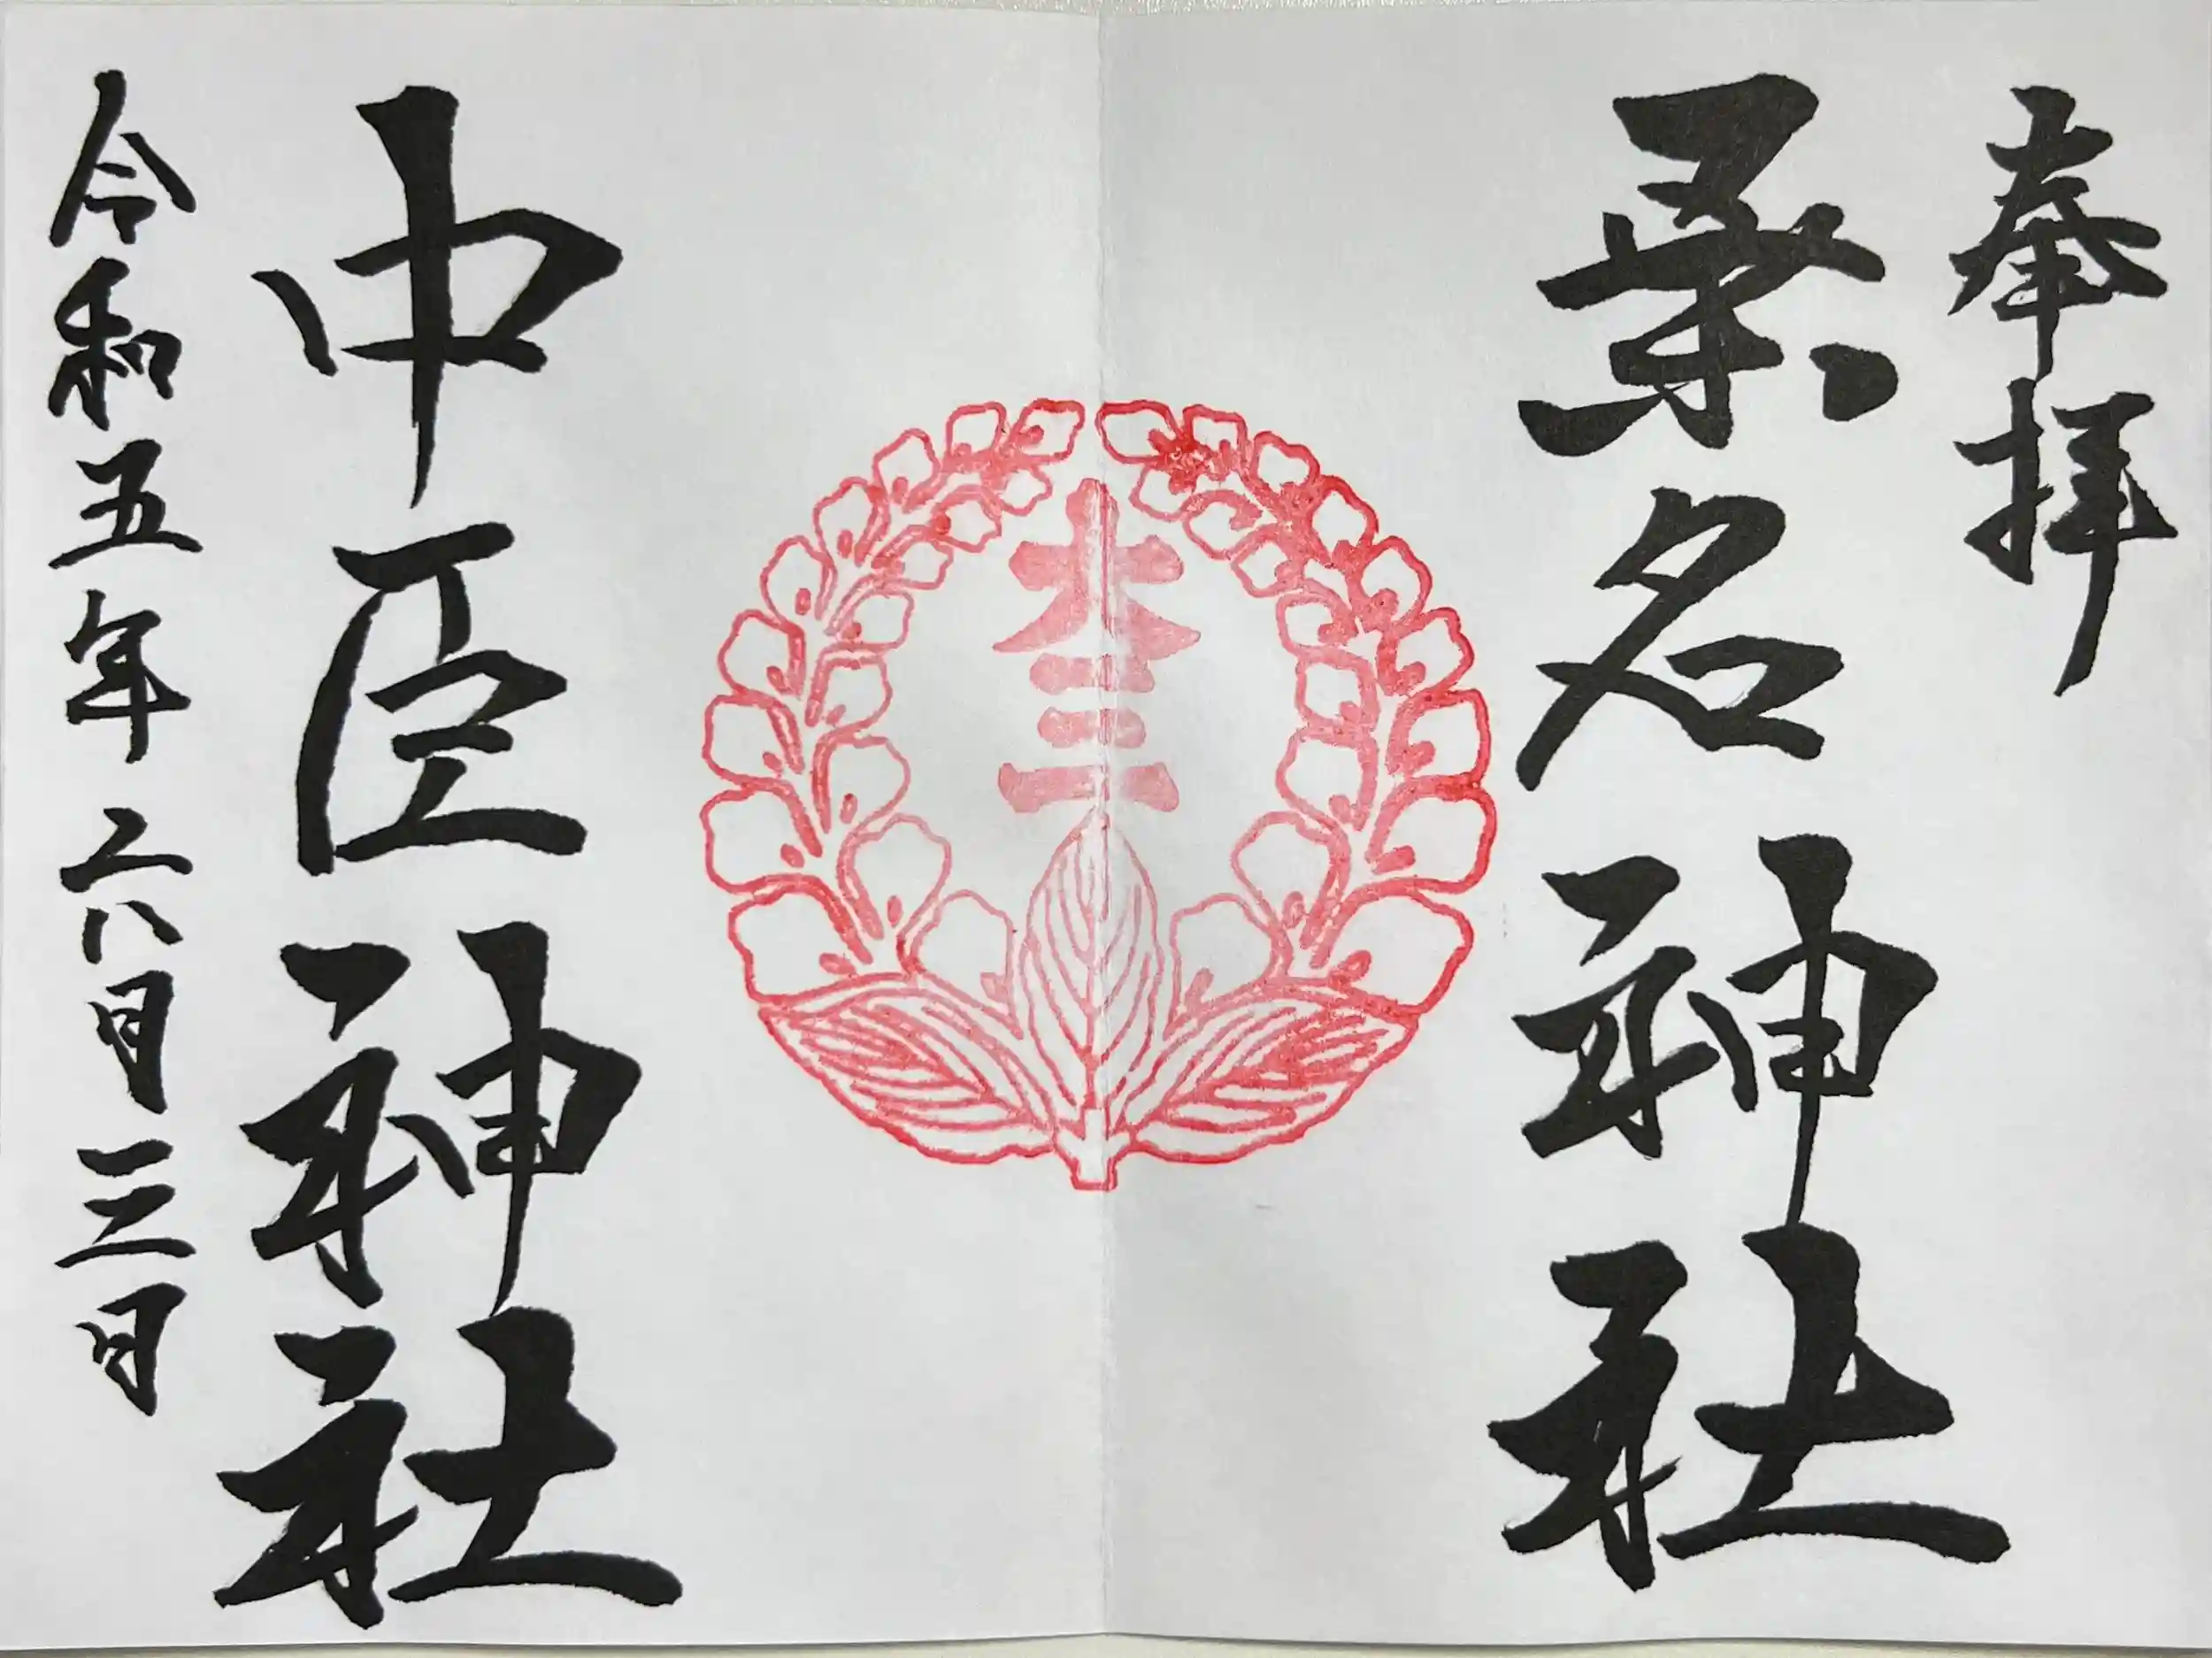 奉拝
桑名神社
大三
中臣神社
令和五年六月三日